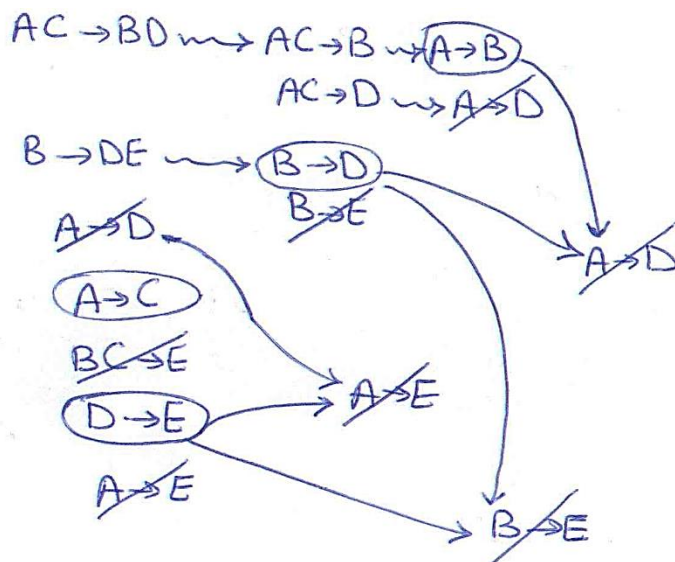 AC→BD ⇝ AC→B ⇝ A→B
AC→D ⇝ A→D
B→DE ⇝ B→D
B→E
A→D
A→D
A→C
BC→E
A→E
D→E
A→E
B→E